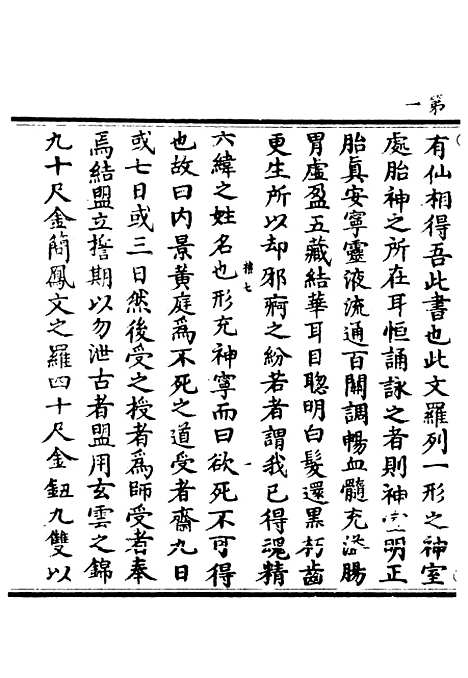 第一
有仙相得吾此書也此文羅列一形之神室
處胎神之所在耳恒誦詠之者則神室明正
胎真安寧靈液流通百關調暢血髓充溢腸
胃虛盈五藏結華耳目聰明白髮還黑朽齒
更生所以却邪痾之紛若者謂我已得魂精
六緯之姓名也形充神寧而曰欲死不可得
也故曰内景黄庭爲不死之道受者齋九日
或七日或三日然後受之授者爲師受者奉
焉結盟立誓期以勿泄古者盟用玄雲之錦
九十尺金簡鳳文之羅四十尺金鈕九雙以